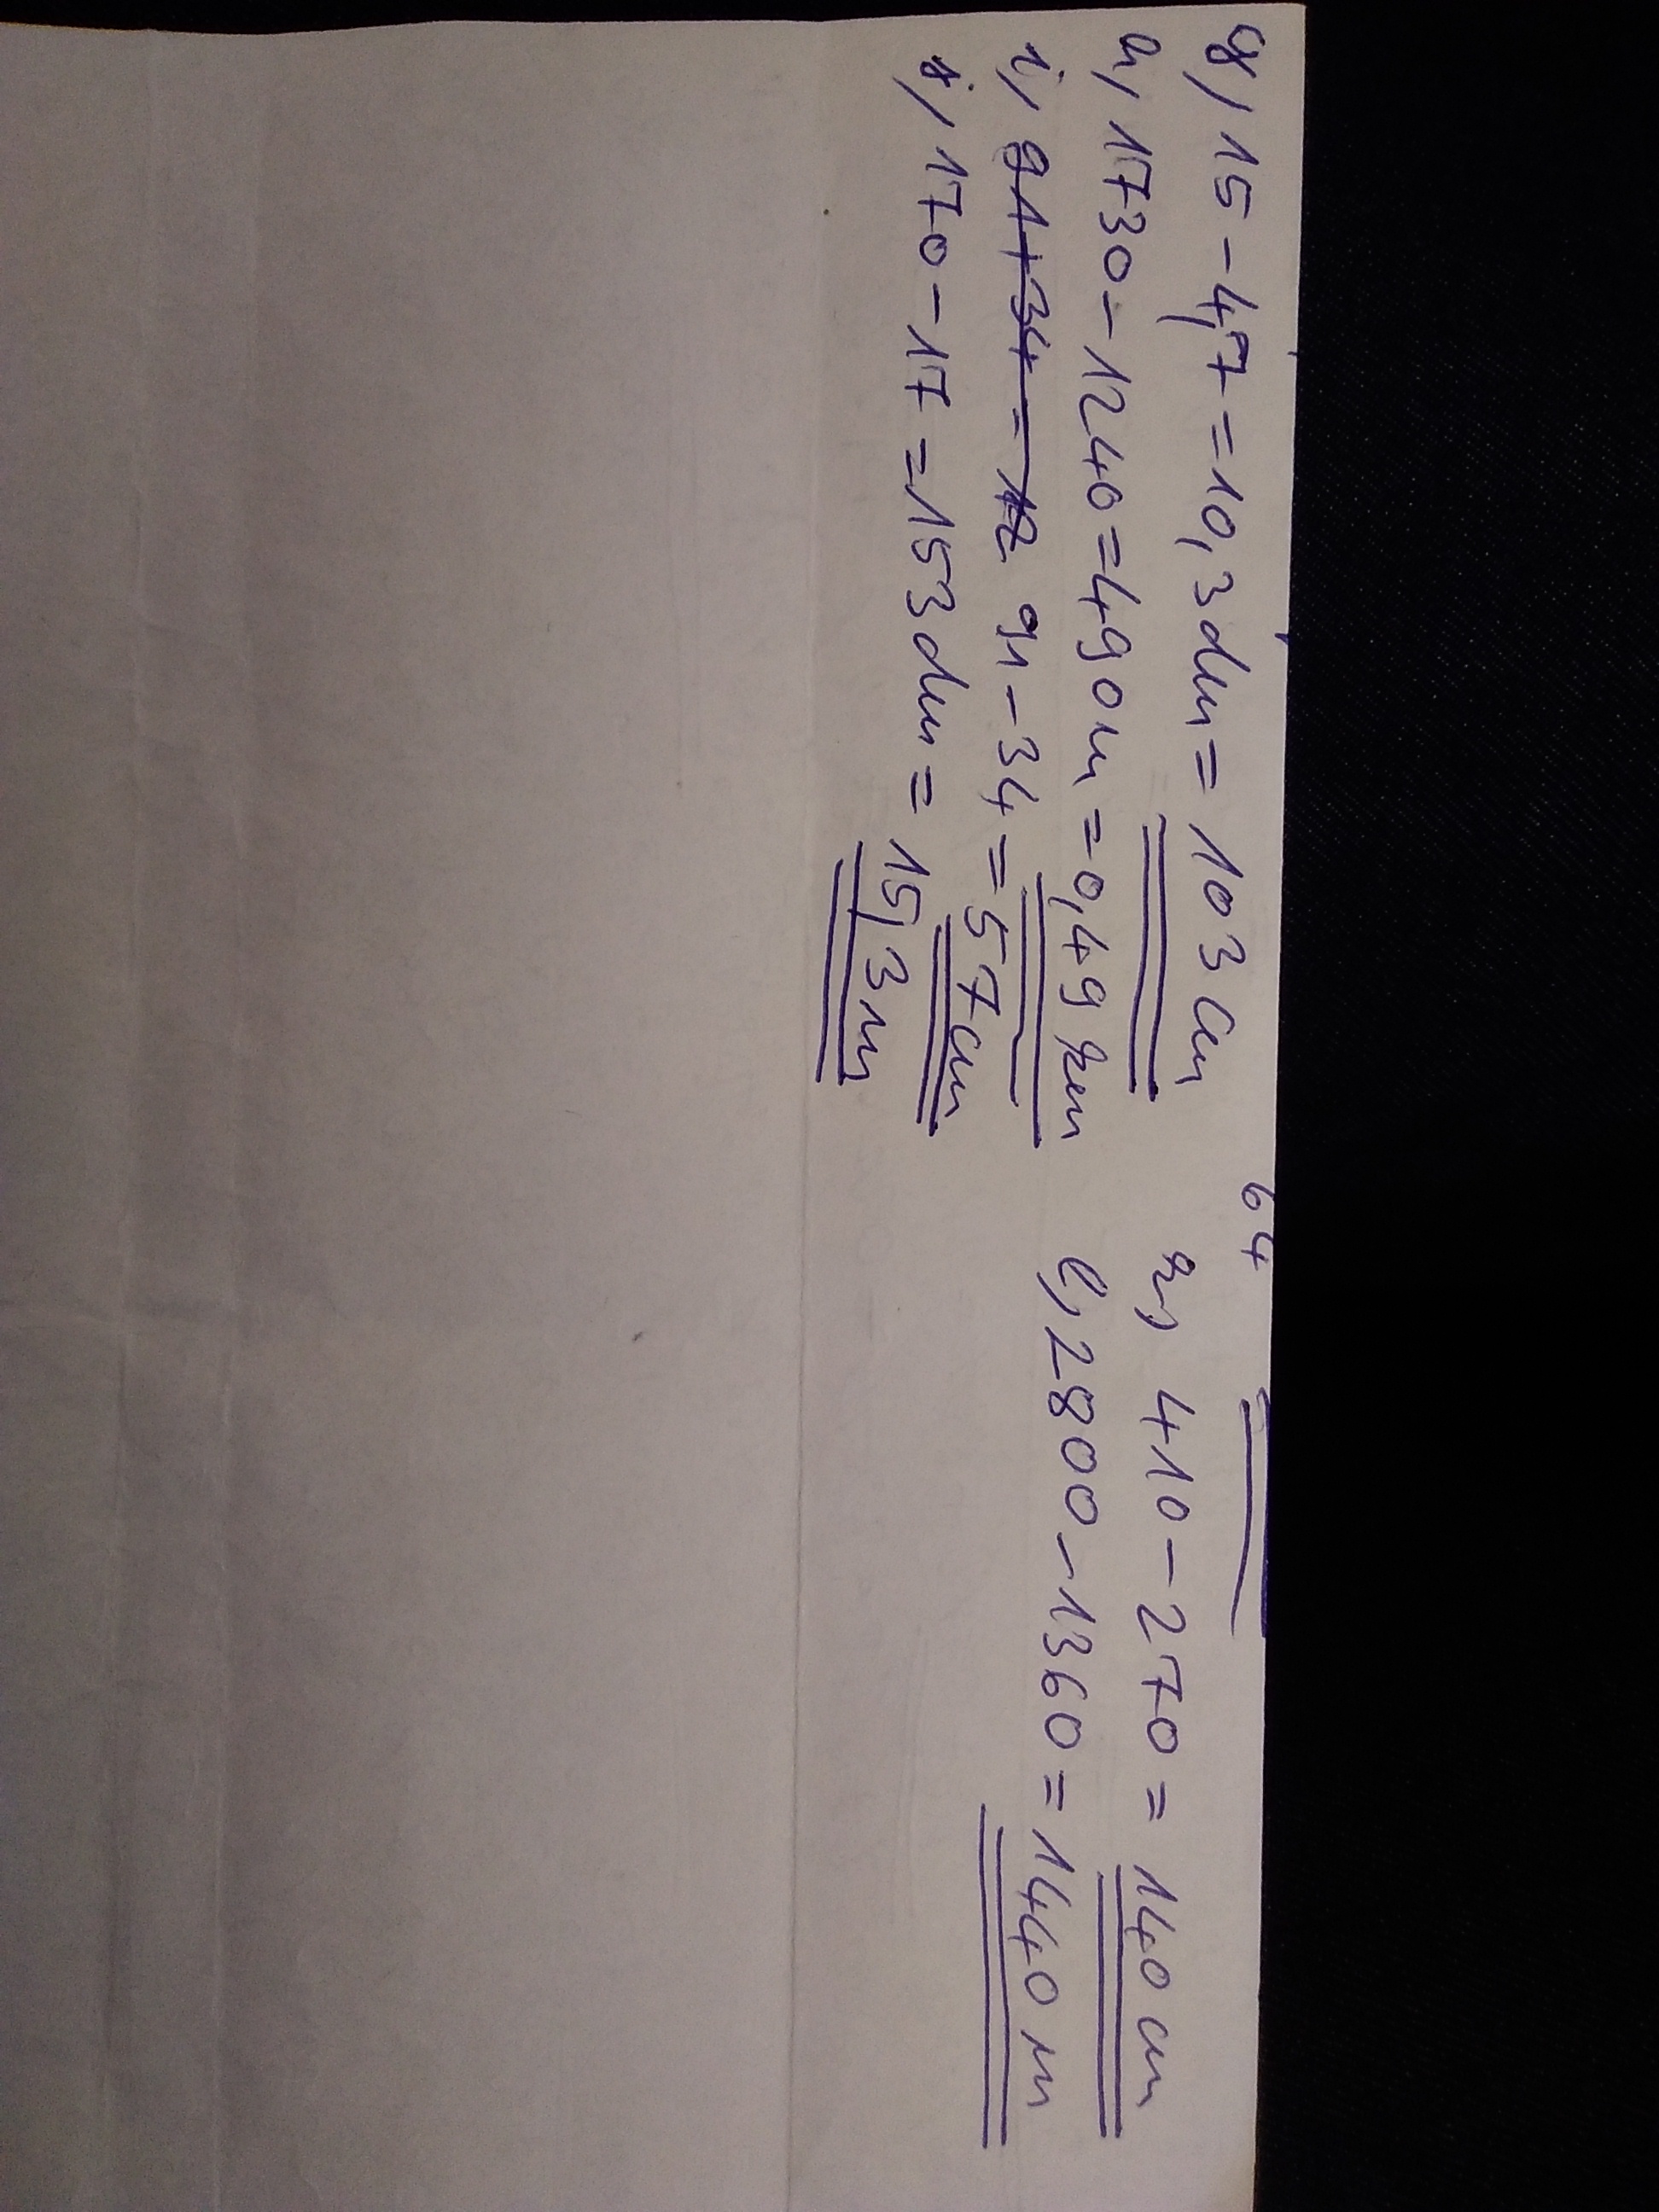 g, 15 - 4,7 = 10,3 dm = 103 cm
h, 1730 - 1240 = 490 m = 0,49 km
i, 91 + 34 = 12 91 - 34 = 57 cm
j, 170 - 17 = 153 dm = 15,3 m
64
k, 410 - 270 = 140 cm
l, 2800 - 1360 = 1440 m